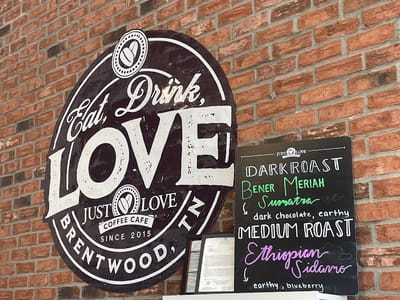 Eat, Drink,
LOVE
JUST LOVE
COFFEE CAFE
SINCE 2015
BRENTWOOD, TN
JUST LOVE
DARK ROAST
BENER MERIAH
Sumatra
dark chocolate, earthy
MEDIUM ROAST
Ethiopian
Sidamo
earthy, blueberry